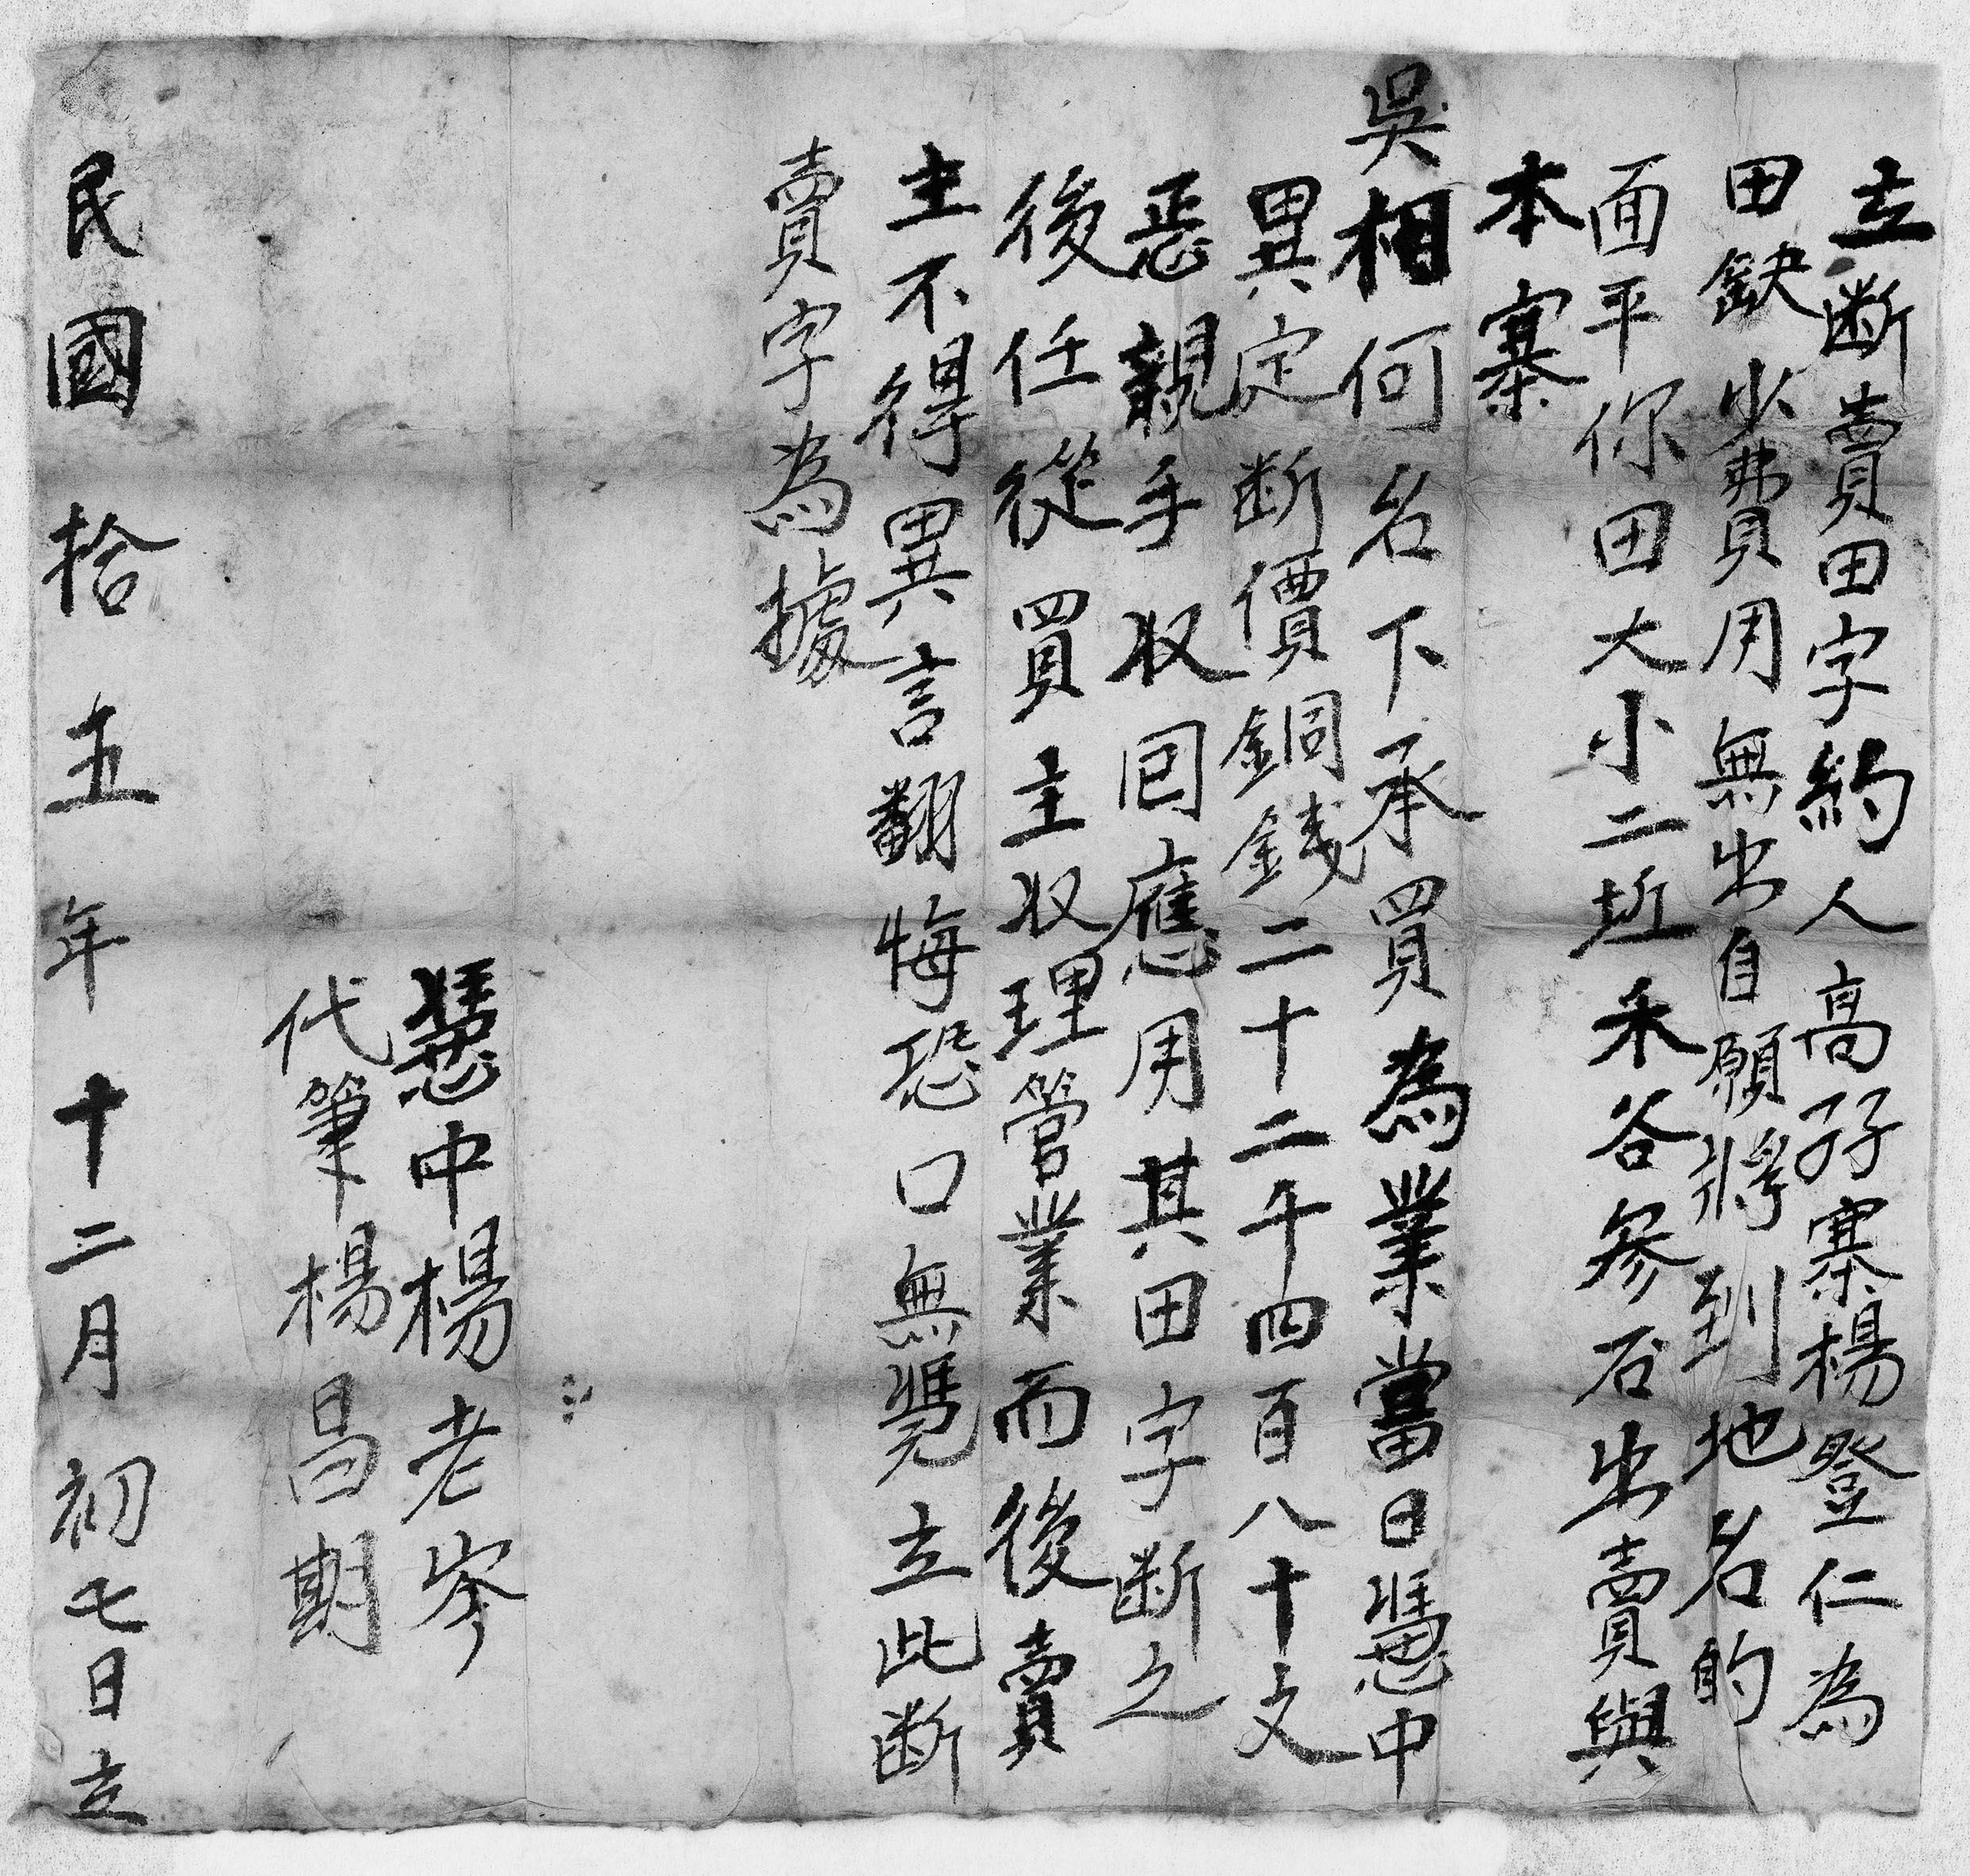 立断賣田字約人高孖寨楊登仁為
田缺少費用無出自願將到地名的
面平你田大小二坵禾谷叄石出賣與
本寨
吳相何名下承買為業當日慿中
異定断價銅銭二十二千四百八十文
恶親手収回應用其田字断之
後任從買主収理管業而後賣
主不得異言翻悔恐口無凴立此断
賣字為據
慿中楊老岑
代筆楊昌期
民國拾五年十二月初七日立